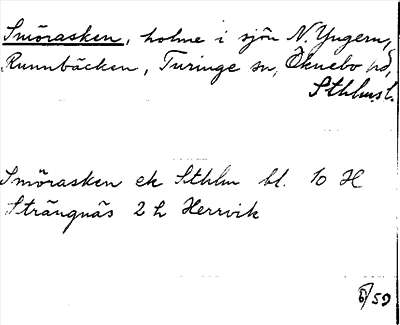 Smörasken, holme i sjön N. Yngern,
Runnbäcken, Turinge sn, Öknebo hd,
Sthlms l.
Smörasken ek Sthlm bl. 10 H
Strängnäs 2 h Herrvik
6/59